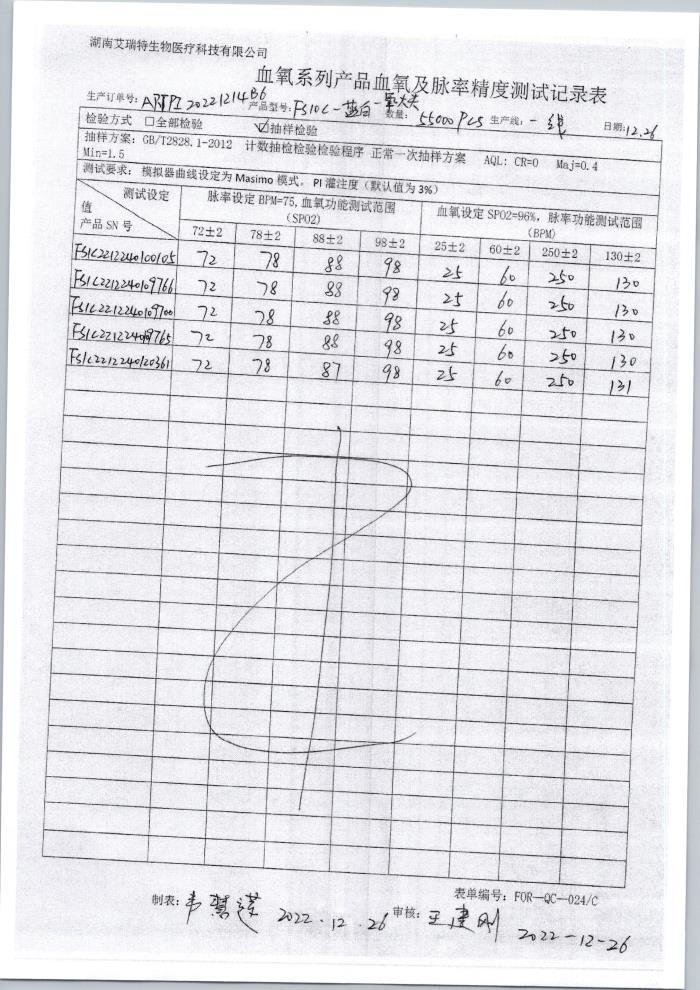 湖南艾瑞特生物医疗科技有限公司
血氧系列产品血氧及脉率精度测试记录表
生产订单号: ARTPI 20221214B6 产品型号: FS10C-蓝白- 数量: 55000PCS 生产线: 一线 日期: 12.26
检验方式 □全部检验 ☑抽样检验
抽样方案: GB/T2828.1-2012 计数抽检检验检验程序 正常一次抽样方案 AQL: CR=0 Maj=0.4
Min=1.5
测试要求: 模拟器曲线设定为 Masimo 模式, PI 灌注度（默认值为 3%）
测试设定 脉率设定 BPM=75, 血氧功能测试范围 血氧设定 SPO2=96%, 脉率功能测试范围
值 (SPO2) (BPM)
产品 SN 号 72±2 78±2 88±2 98±2 25±2 60±2 250±2 130±2
FS1C2212240100105 72 78 88 98 25 60 250 130
FS1C2212240109766 72 78 88 98 25 60 250 130
FS1C2212240109700 72 78 88 98 25 60 250 130
FS1C2212240109765 72 78 88 98 25 60 250 130
FS1C2212240120361 72 78 87 98 25 60 250 131
表单编号: FOR—QC—024/C
制表: 韦慧 2022.12.26 审核: 王建刚 2022-12-26